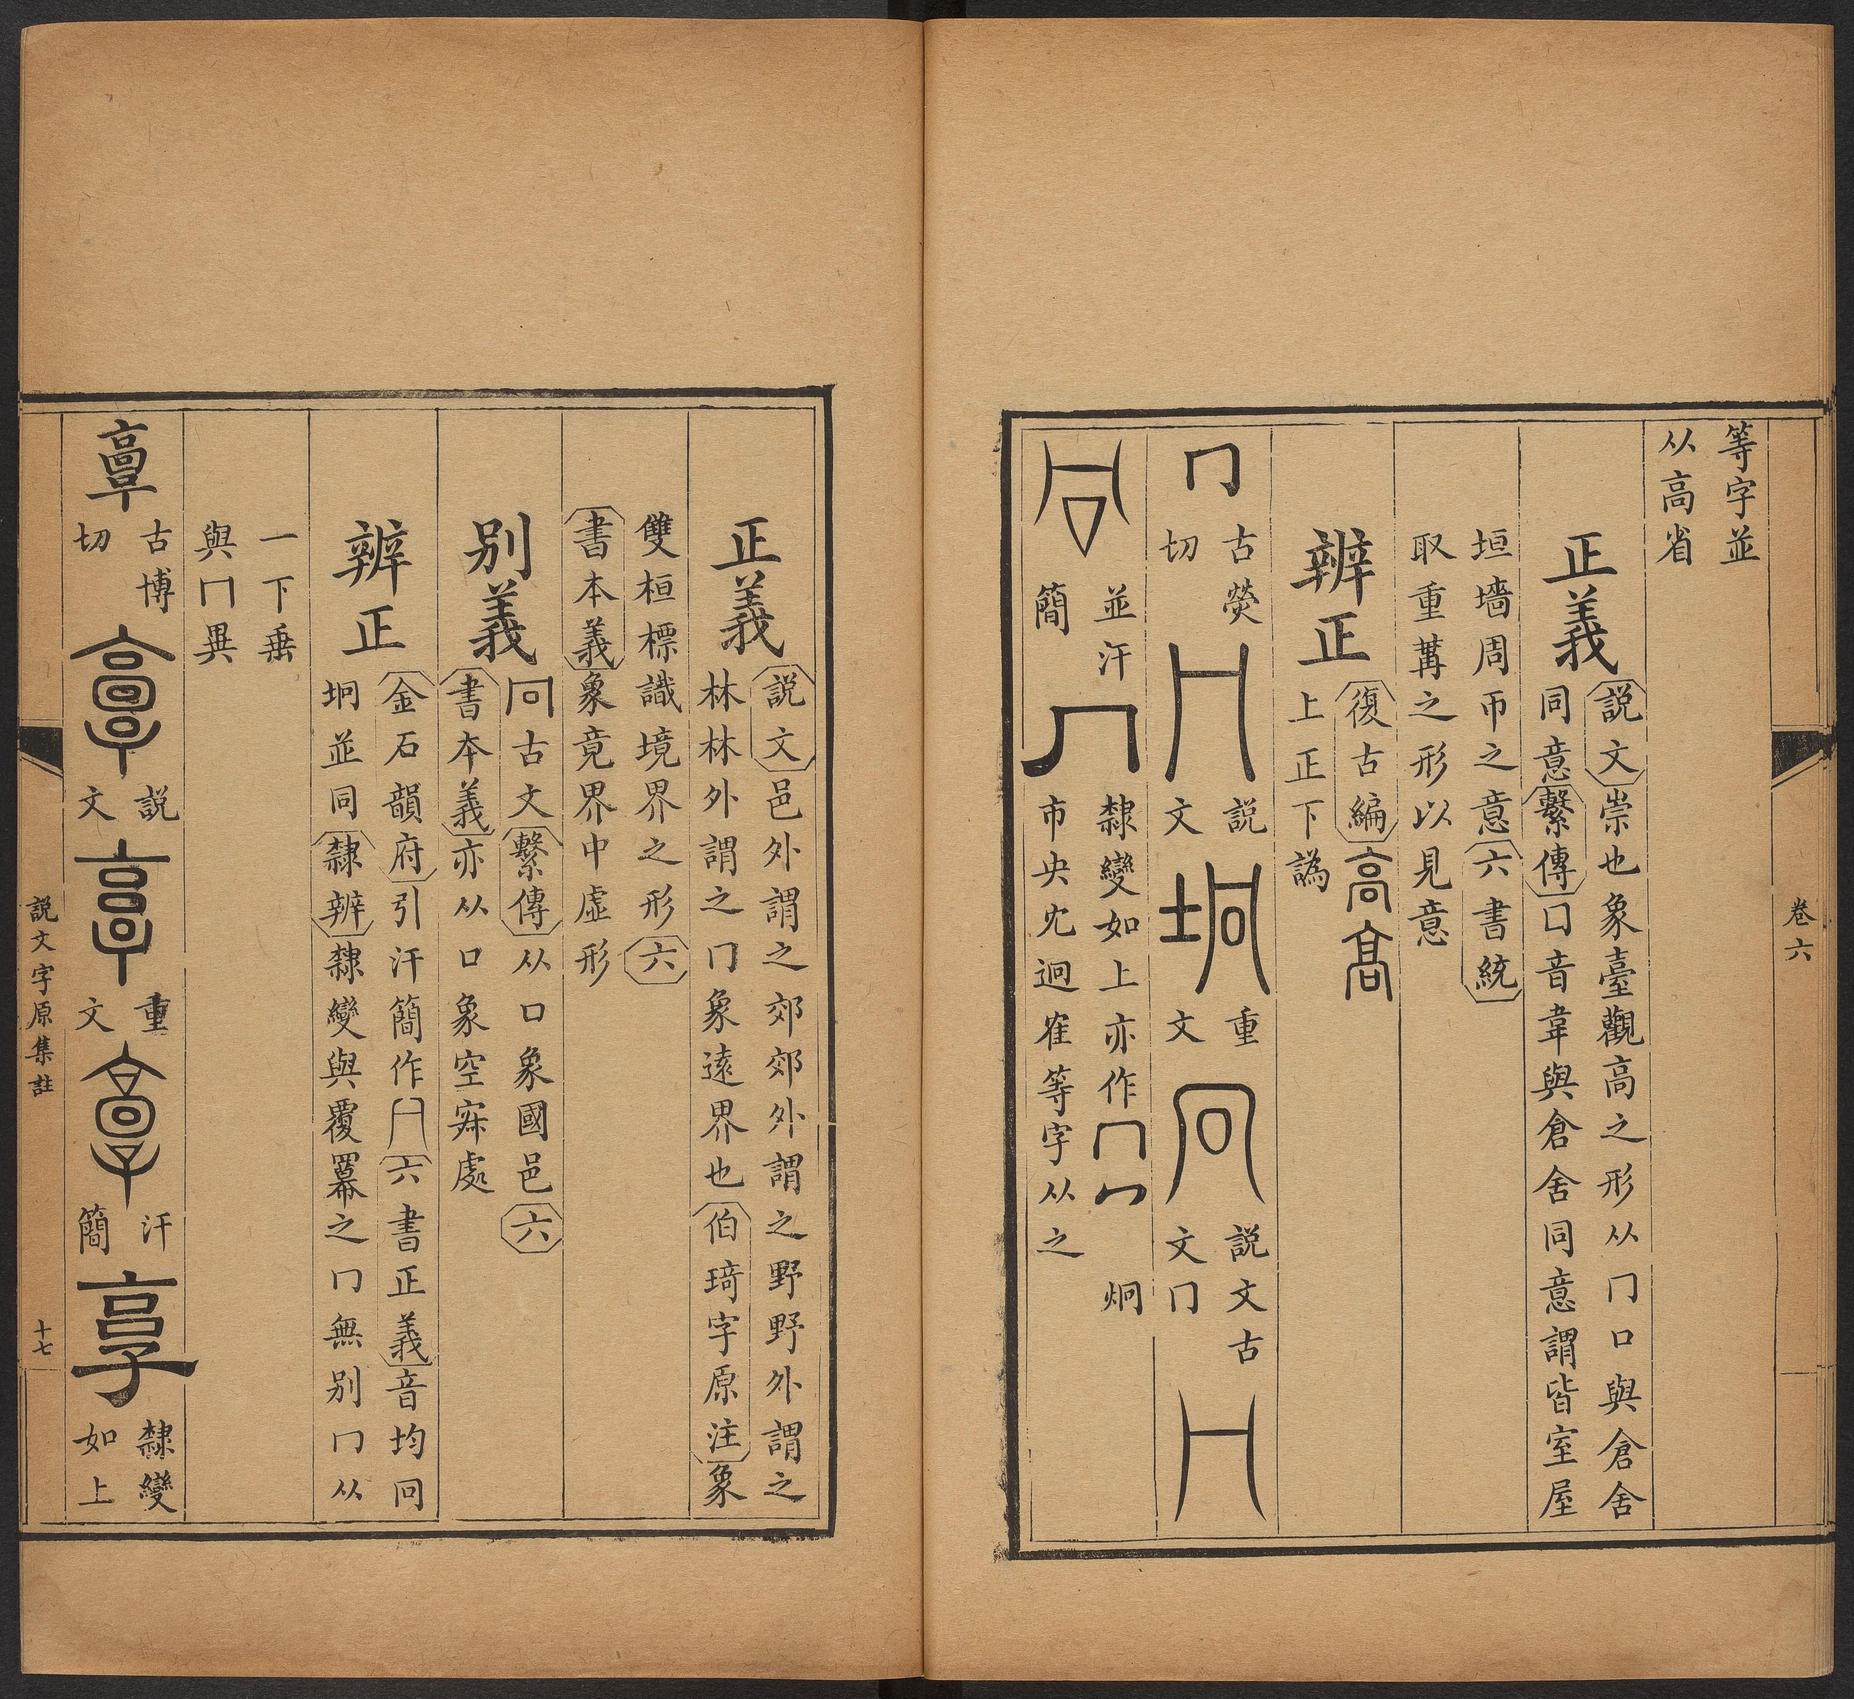 卷六
等字並
从高省
正義
説文崇也象臺觀高之形从冂口與倉舍
同意繫傳口音韋與倉舍同意謂皆室屋
垣墻周帀之意六書統
取重冓之形以見意
辨正
復古編高髙
上正下譌
冂
古熒
切
冂
説
文
坰
重
文
冋
説文古
文冂
冂
並汗
簡
隸變如上亦作冂冖 炯
市央冘迥隺等字从之
正義
説文邑外謂之郊郊外謂之野野外謂之
林林外謂之冂象遠界也伯琦字原注象
雙桓標識境界之形六
書本義象竟界中虛形
別義
冋古文繫傳从口象國邑六
書本義亦从口象空寀處
辨正
金石韻府引汗簡作冂六書正義音均同
坰並同隸辨隸變與覆冪之冂無別冂从
一下垂
與冂異
𩫏
古博
切
𩫏
説
文
𩫏
重
文
𩫏
汗
簡
享
隸變
如上
説文字原集註
十七